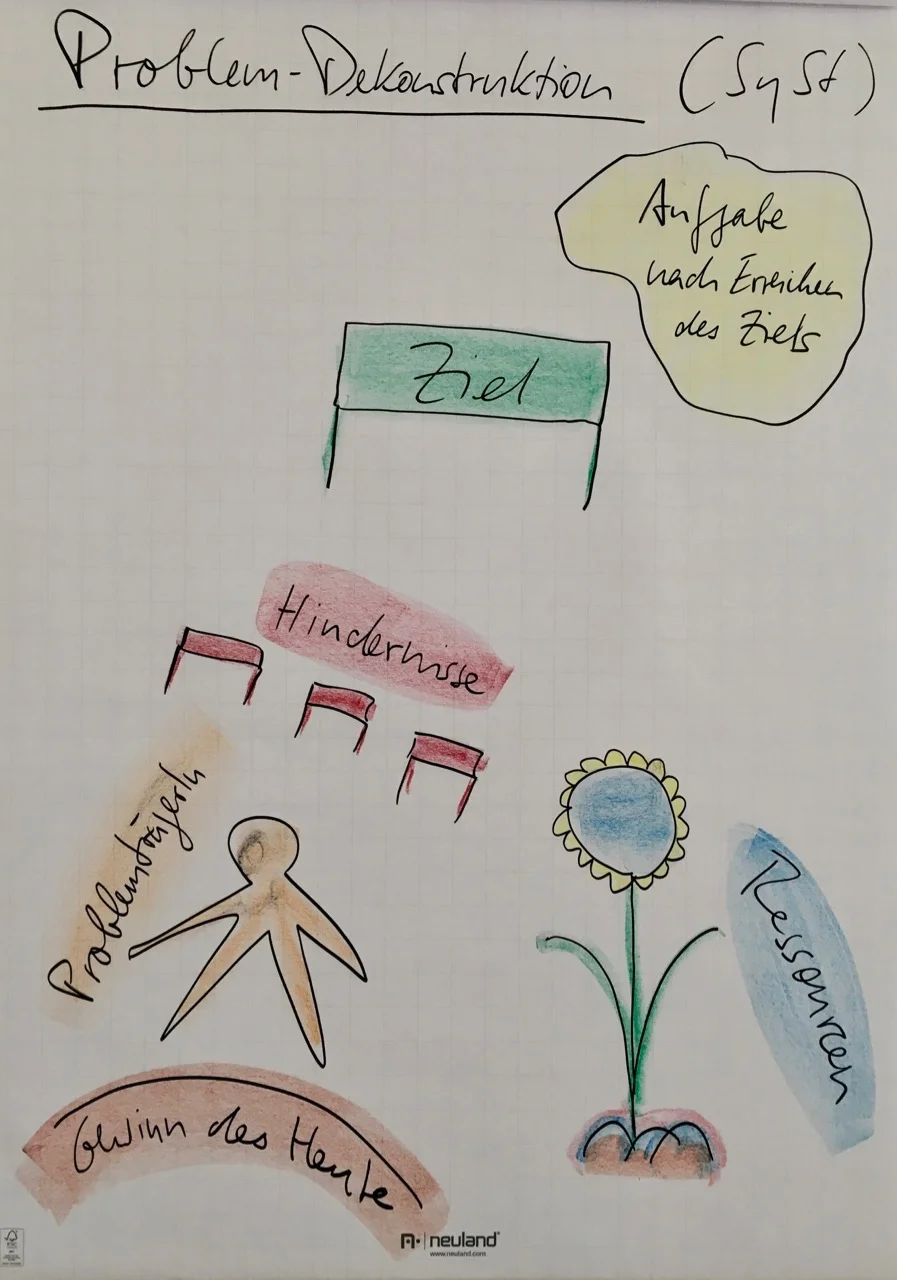 Problem-Dekonstruktion (SySt)
Aufgabe
nach Erreichen
des Ziels
Ziel
Hindernisse
ProblemträgerIn
Ressourcen
Gewinn des Heute
neuland
www.neuland.com
FSC